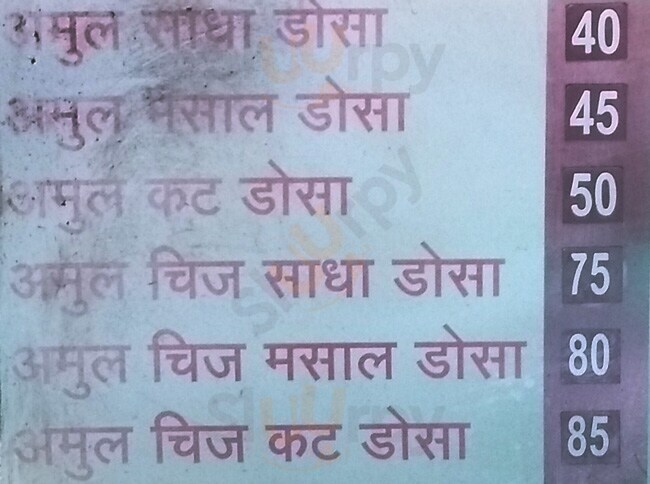 अमुल साधा डोसा 40
अमुल मसाल डोसा 45
अमुल कट डोसा 50
अमुल चिज साधा डोसा 75
अमुल चिज मसाल डोसा 80
अमुल चिज कट डोसा 85